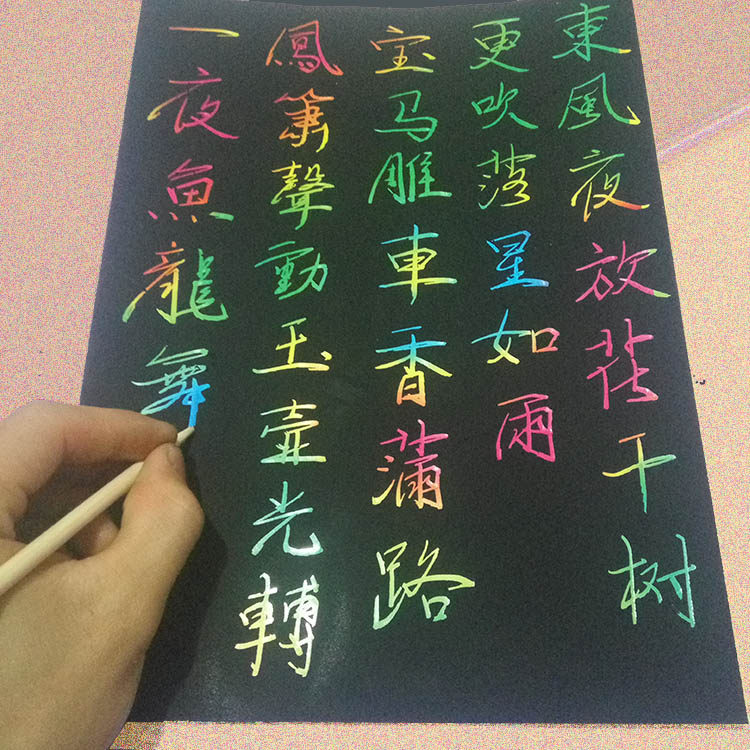 東風夜放花千树
更吹落星如雨
宝马雕車香滿路
鳳簫聲動玉壺光轉
一夜魚龍舞